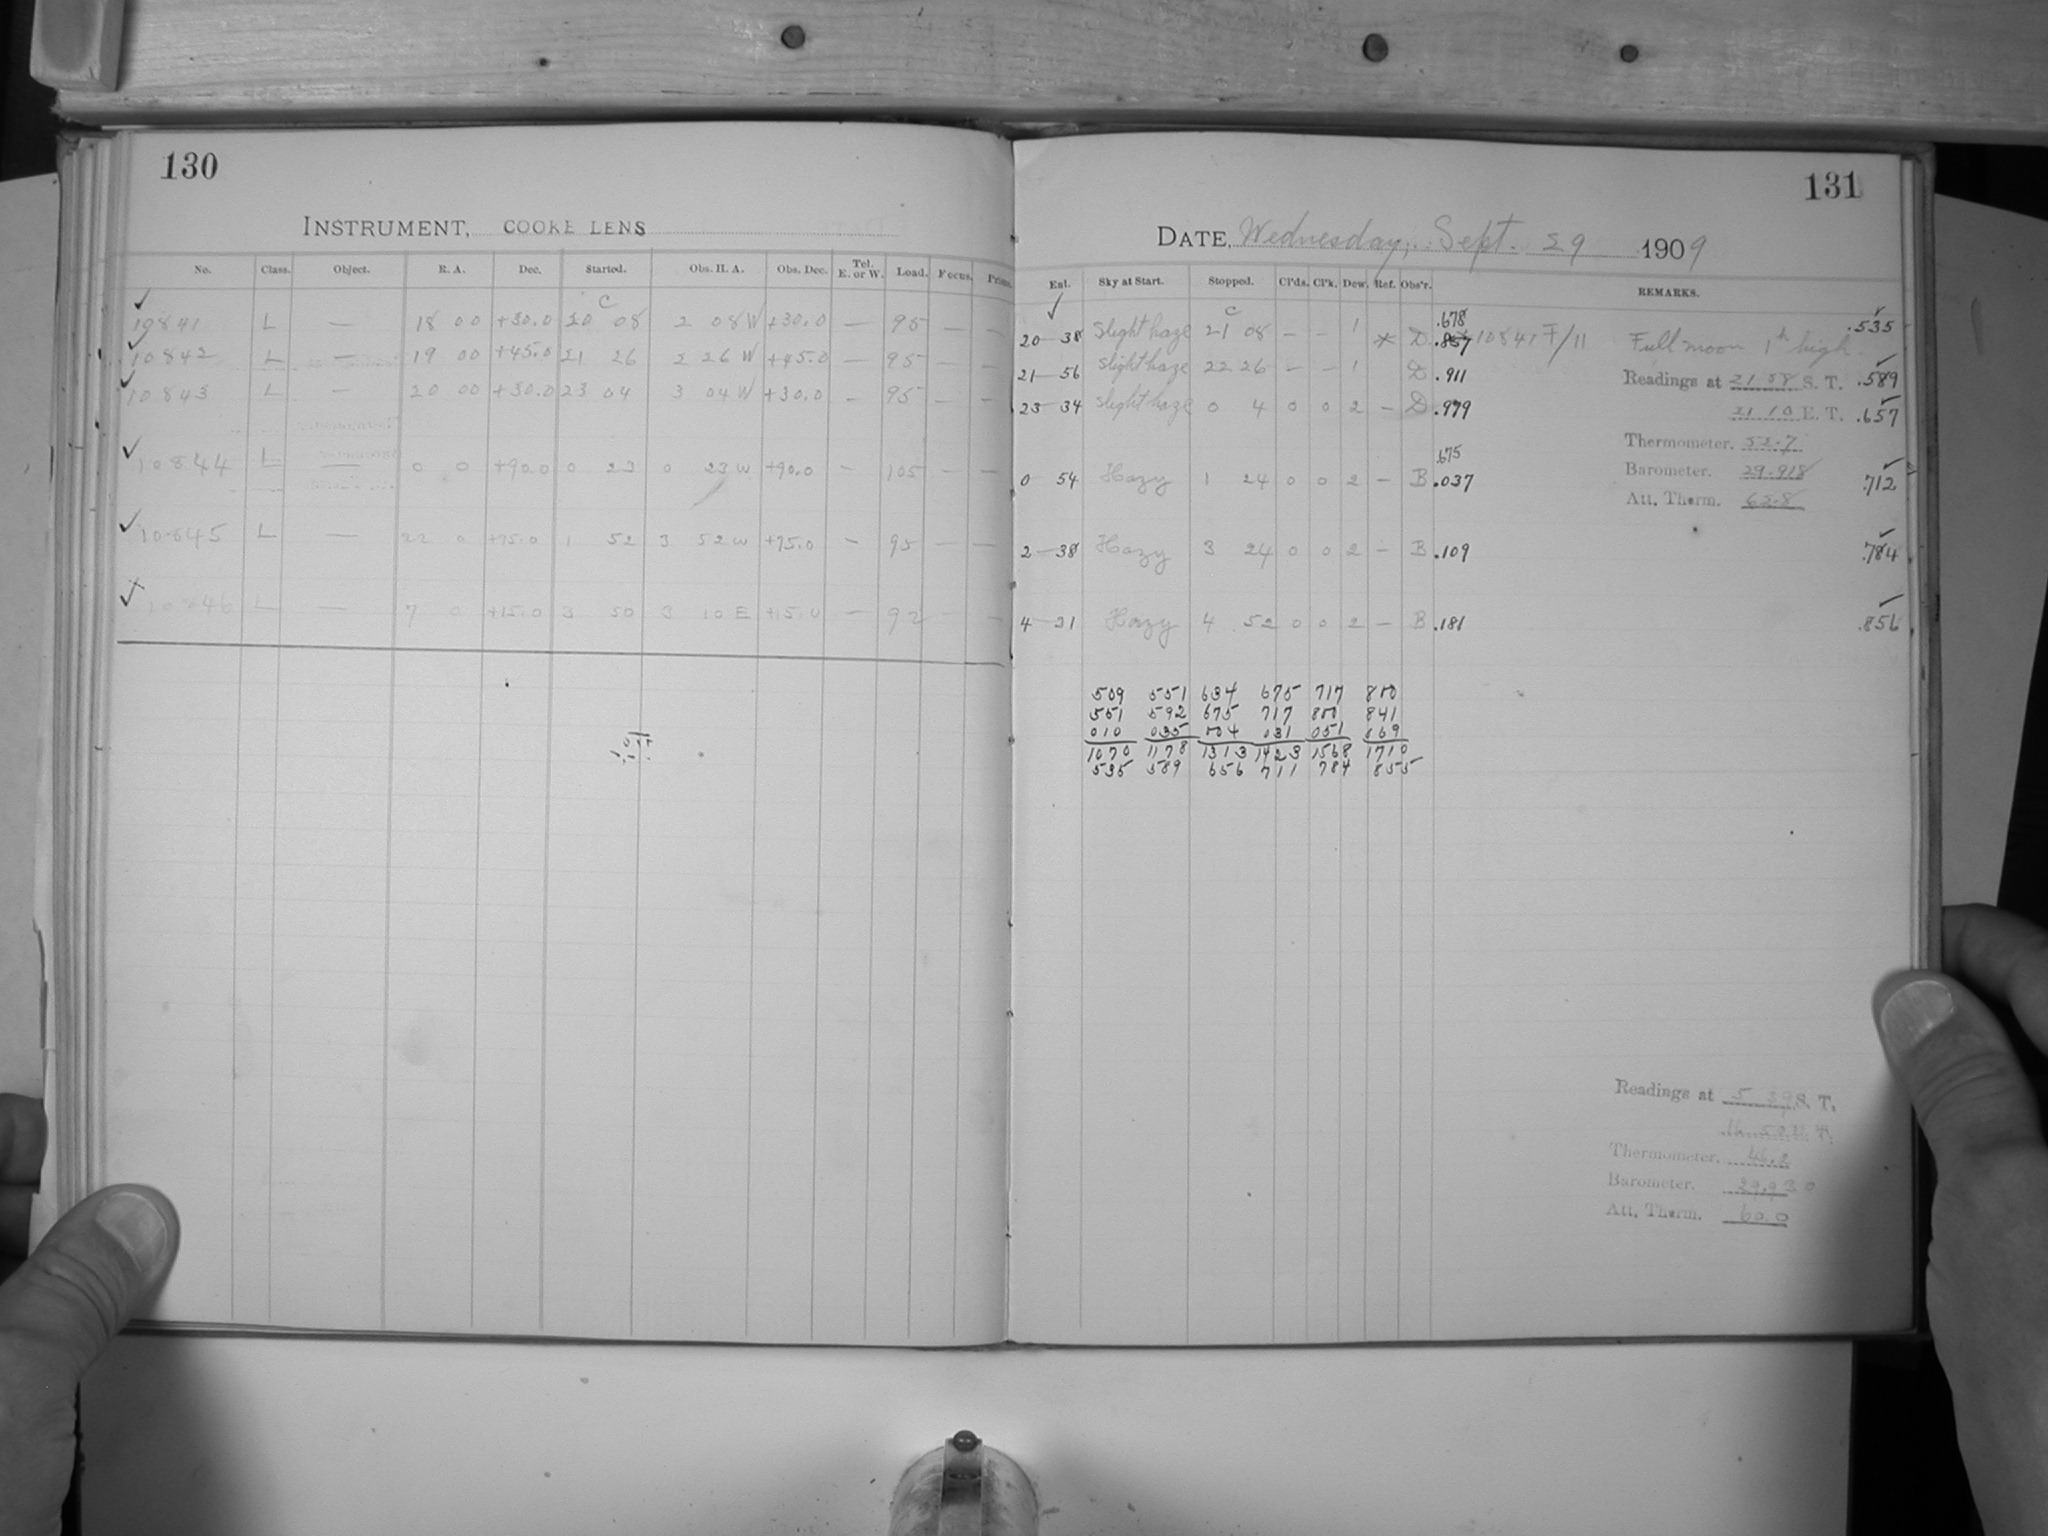 130
INSTRUMENT, COOKE LENS
No. Class. Object. R. A. Dec. Started. Obs. H. A. Obs. Dec. Tel. E. or W. Load. Focus.
C
10841 L — 18 00 +30.0 20 08 2 08 W +30.0 — 95 — —
10842 L — 19 00 +45.0 21 26 2 26 W +45.0 — 95 — —
10843 L — 20 00 +30.0 23 04 3 04 W +30.0 — 95 — —
10844 L — 0 0 +90.0 0 23 0 23 W +90.0 — 105 — —
10845 L — 22 0 +75.0 1 52 3 52 W +75.0 — 95 — —
10846 L — 7 0 +15.0 3 50 3 10 E +15.0 — 92 — —
131
DATE, Wednesday, Sept. 29 1909
Sky at Start. Stopped. Cl'ds. Cl'k. Dew. Ref. Obs'r. REMARKS.
C .678
20—38 Slight haze 21 08 — — 1 * D .857 10841 F/11 Full moon 1h high. .535
21—56 Slight haze 22 26 — — 1 D .911 Readings at 21 58 S. T. .589
23—34 Slight haze 0 4 0 0 2 — D .979 21 10 E. T. .657
Thermometer. 52.7
.675
0 54 Hazy 1 24 0 0 2 — B .037 Barometer. 29.918 .712
Att. Therm. 62.8
2—38 Hazy 3 24 0 0 2 — B .109 .784
4—21 Hazy 4 52 0 0 2 — B .181 .856
509 551 634 675 717 800
551 592 675 717 800 841
010 035 004 031 051 069
1070 1178 1313 1423 1568 1710
535 589 656 711 784 855
Readings at 5 39 S. T.
Thermometer. 46.2
Barometer. 29.930
Att. Therm. 60.0